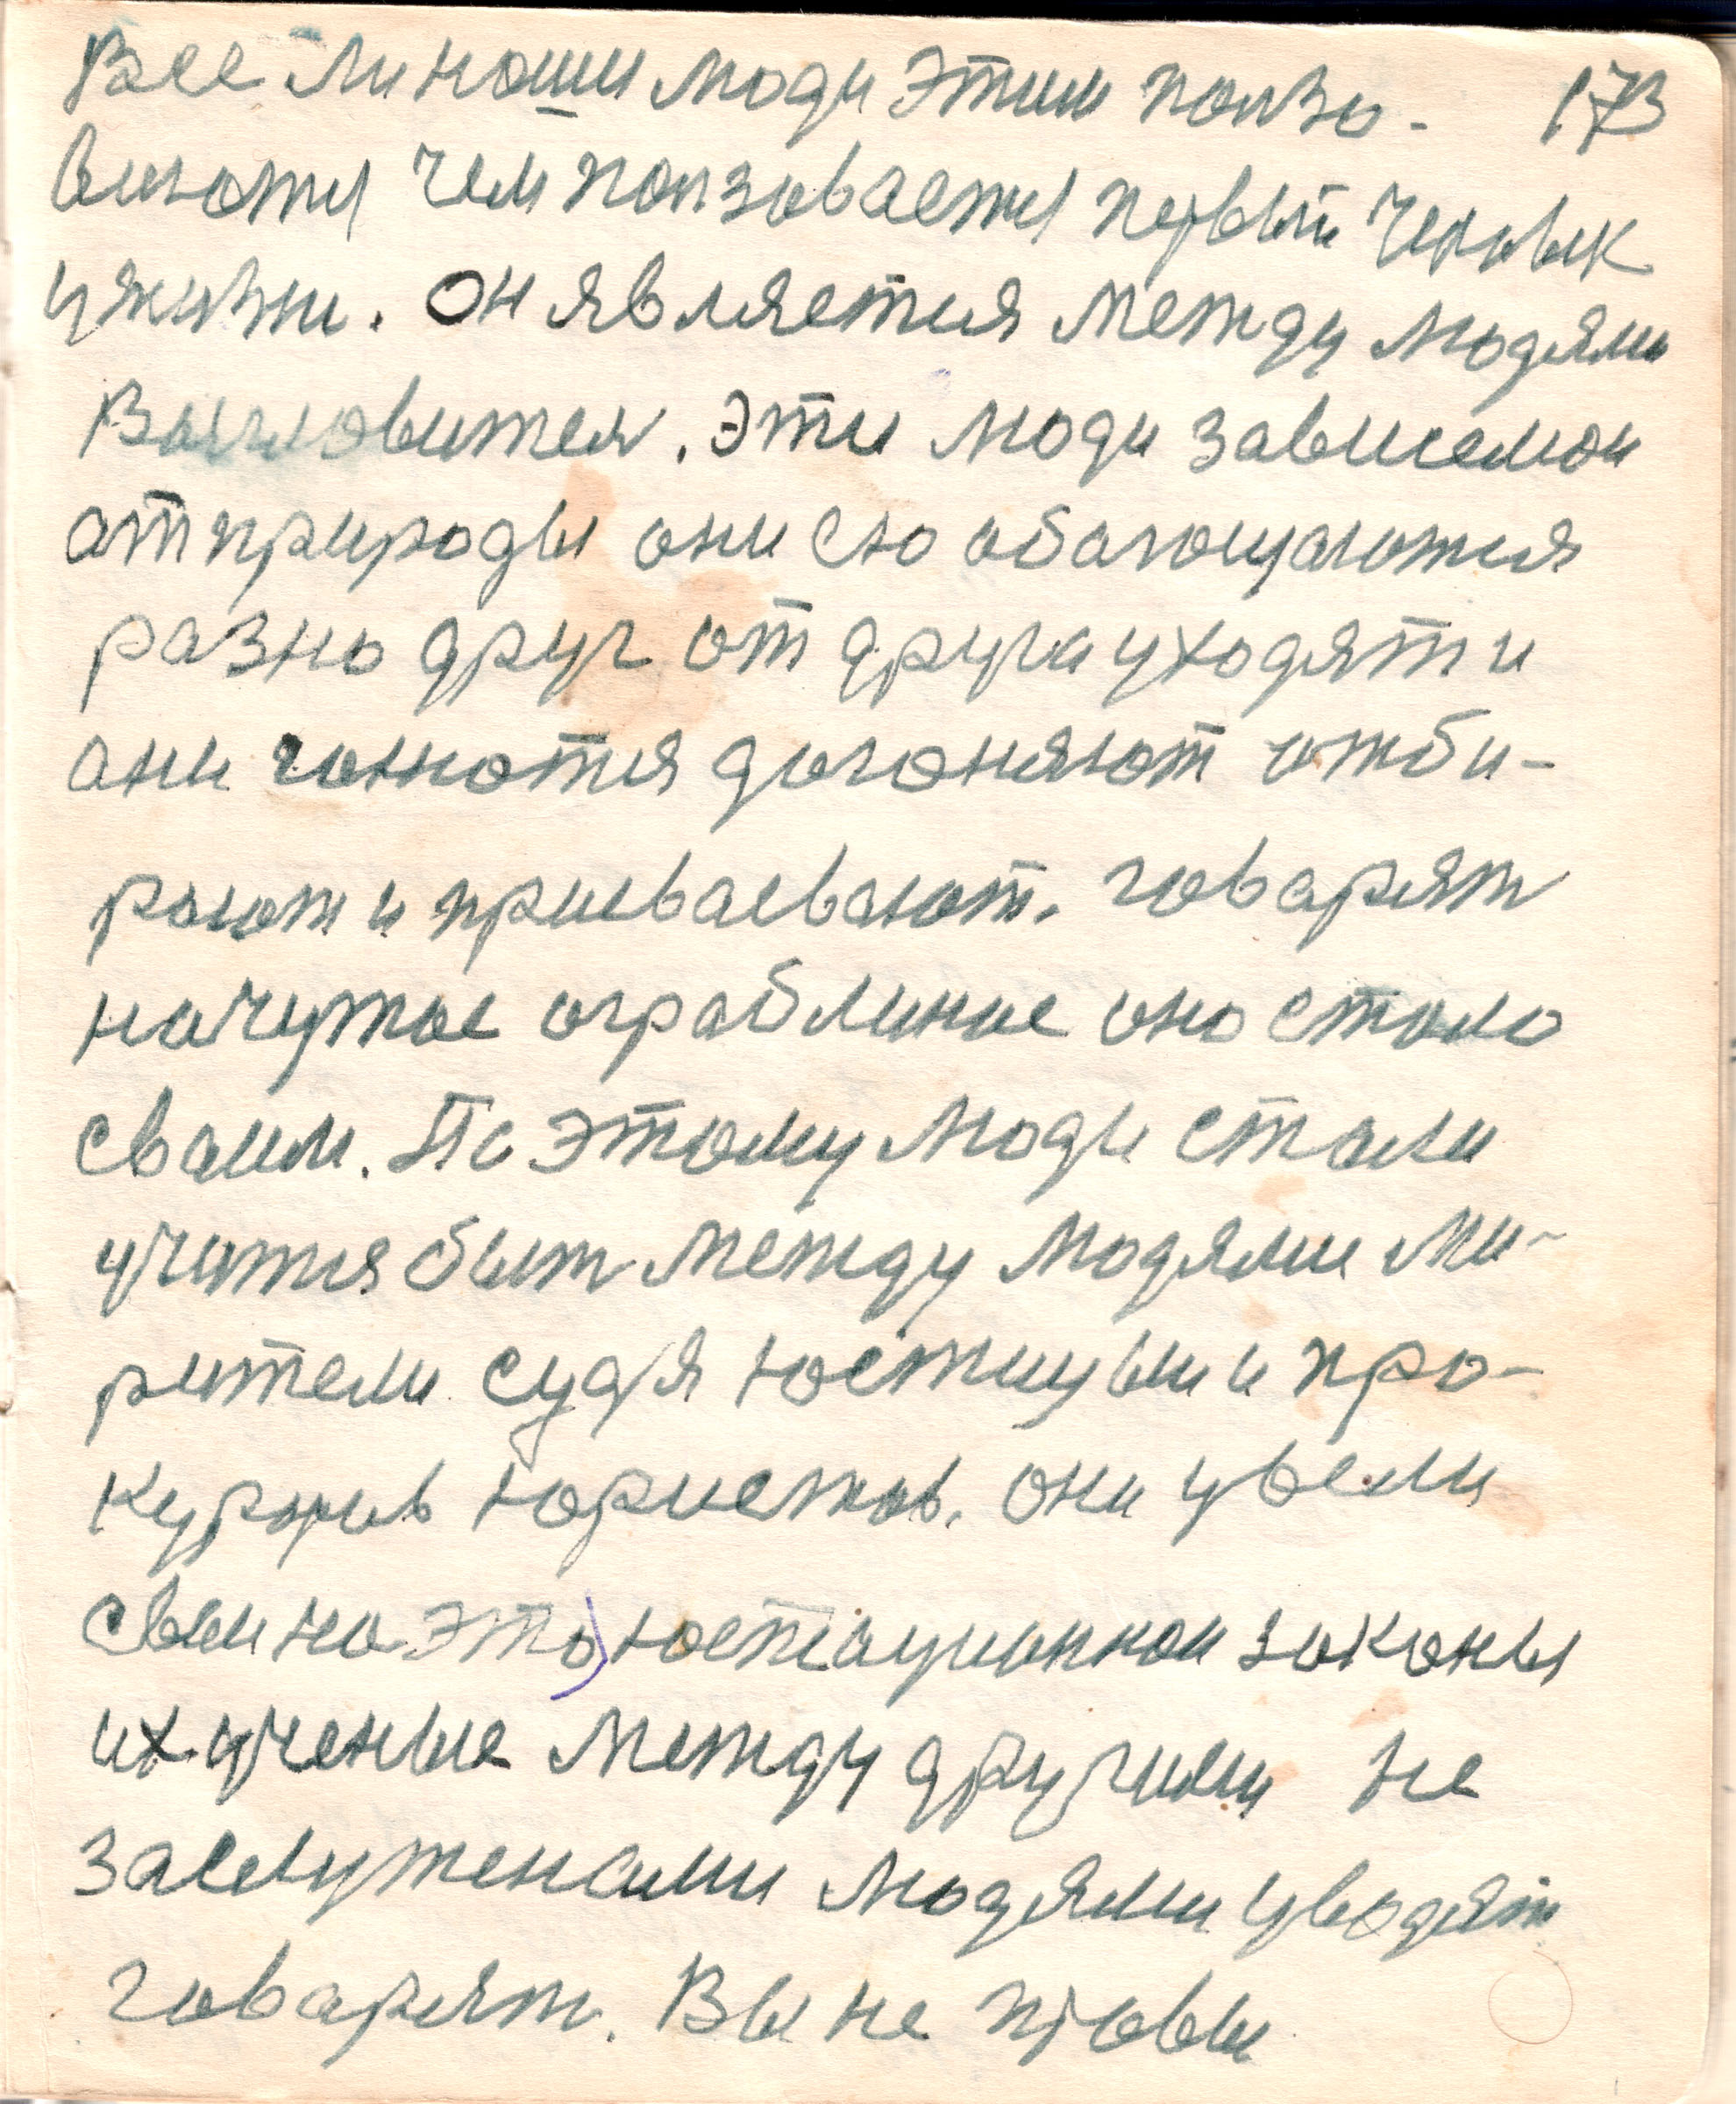 Все ли наши люди этим пользо- 173
вилются чем ползовается первый человек
у жизни. Он является между людями
Востоновител. Эти люди зависемои
от природы они ею обагощаются
разно друг от друга уходят и
они гонются догоняют отби-
рают и присваевают. говарят
на чужое ограблиное оно стало
сваим. По этому люди стали
учится быт между людями ми-
рители судя юстицыи и про-
куроров юристов. они увели
сваи на это юстационнои законы
их учение между другими не
заслуженами людями уводят
говарят. Вы не правы